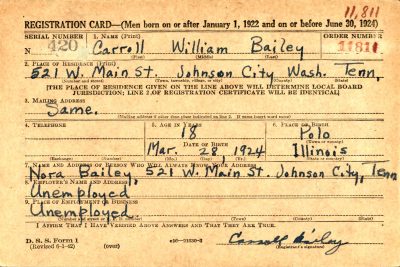 11,811
REGISTRATION CARD—(Men born on or after January 1, 1922 and on or before June 30, 1924)
SERIAL NUMBER 1. NAME (Print) ORDER NUMBER
N 420 Carroll William Bailey 11811
(First) (Middle) (Last)
2. PLACE OF RESIDENCE (Print)
521 W. Main St. Johnson City Wash. Tenn.
(Number and street) (Town, township, village, or city) (County) (State)
[THE PLACE OF RESIDENCE GIVEN ON THE LINE ABOVE WILL DETERMINE LOCAL BOARD
JURISDICTION; LINE 2 OF REGISTRATION CERTIFICATE WILL BE IDENTICAL]
3. MAILING ADDRESS
Same.
[Mailing address if other than place indicated on line 2. If same insert word same]
4. TELEPHONE 5. AGE IN YEARS 6. PLACE OF BIRTH
18 Polo
DATE OF BIRTH (Town or county)
Mar. 28, 1924 Illinois
(Exchange) (Number) (Mo.) (Day) (Yr.) (State or country)
7. NAME AND ADDRESS OF PERSON WHO WILL ALWAYS KNOW YOUR ADDRESS
Nora Bailey, 521 W. Main St. Johnson City, Tenn
8. EMPLOYER'S NAME AND ADDRESS
Unemployed
9. PLACE OF EMPLOYMENT OR BUSINESS
Unemployed.
(Number and street or R. F. D. number) (Town) (County) (State)
I AFFIRM THAT I HAVE VERIFIED ABOVE ANSWERS AND THAT THEY ARE TRUE.
D. S. S. Form 1
(Revised 6-1-42) (over) Carroll Bailey
(Registrant's signature)